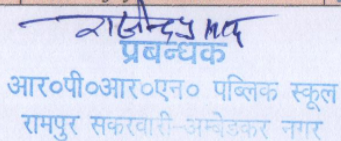 प्रबन्धक
आर०पी०आर०एन० पब्लिक स्कूल
रामपुर सकरवारी-अम्बेडकर नगर